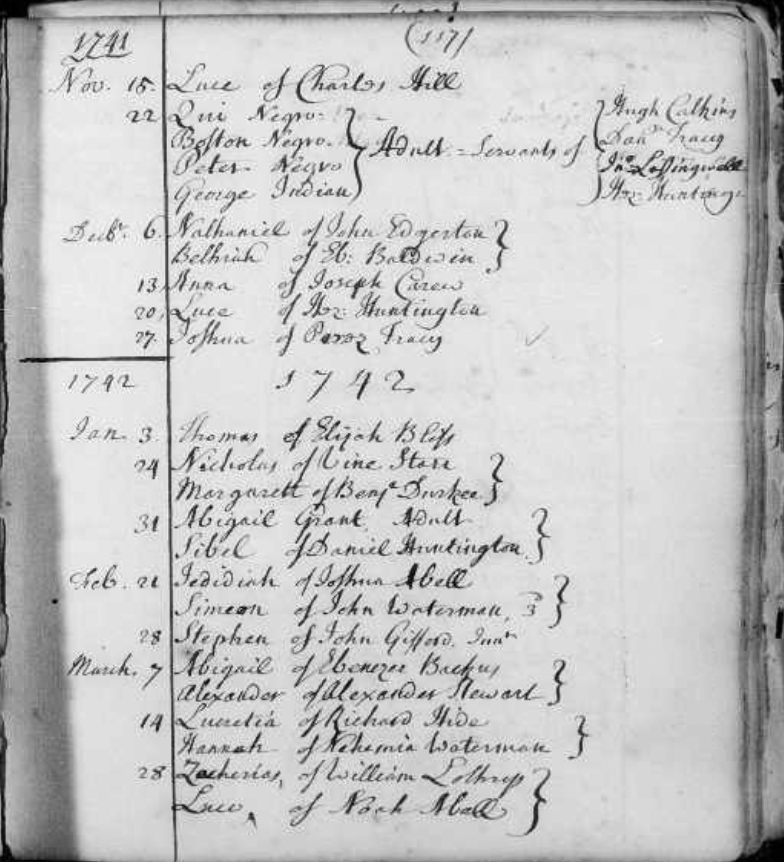 1741 (117)
Nov. 15. Luce of Charles Hill
22 Qui Negro. Hugh Calkins
Boston Negro. Adult = Servants of Danll Tracy
Peter Negro Jno Leffingwell
George Indian Hez: Huntingn
Decbr. 6. Nathaniel of John Edgerton
Bethiah of Eb: Baldwin
13 Anna of Joseph Carew
20, Luce of Hez: Huntington
27. Joshua of Perez Tracy
1742 1742
Jan. 3. Thomas of Elijah Bliss
24 Nicholas of Vine Starr
Margarett of Benja Durkee
31 Abigail Grant Adult
Sibel of Daniel Huntington
Feb. 21 Jedidiah of Joshua Abell
Simeon of John Waterman, 3d
28 Stephen of John Gifford. Junr
March. 7 Abigail of Ebenezer Backus
Alexander of Alexander Stewart
14 Lucretia of Richard Hide
Hannah of Nehemia Waterman
28 Zacherias, of William Lothrop
Luce, of Noah Abell